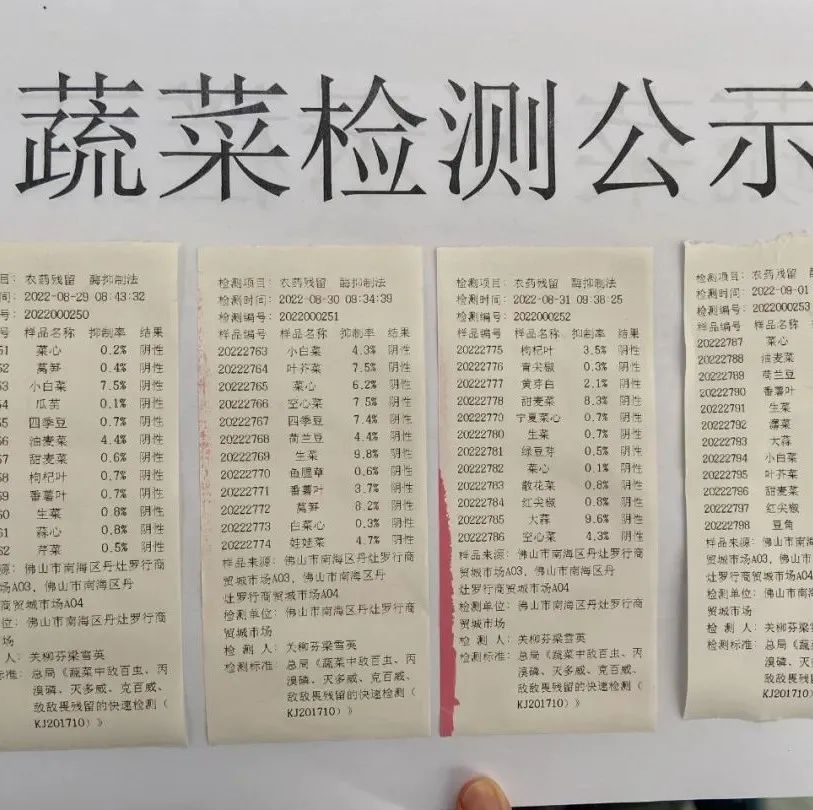 蔬菜检测公示
目：农药残留 酶抑制法
间：2022-08-29 08:43:32
号：2022000250
号 样品名称 抑制率 结果
51 菜心 0.2% 阴性
52 莴笋 0.4% 阴性
53 小白菜 7.5% 阴性
54 瓜苗 0.1% 阴性
55 四季豆 0.7% 阴性
56 油麦菜 4.4% 阴性
57 甜麦菜 0.6% 阴性
58 枸杞叶 0.7% 阴性
59 番薯叶 0.7% 阴性
60 生菜 0.8% 阴性
61 蒜心 0.8% 阴性
62 芹菜 0.5% 阴性
源：佛山市南海区丹灶罗行商
场A03，佛山市南海区丹
行商贸城市场A04
位：佛山市南海区丹灶罗行商
场
人：关柳芬梁雪英
标准：总局《蔬菜中敌百虫、丙
溴磷、灭多威、克百威、
敌敌畏残留的快速检测（
KJ201710）》
检测项目：农药残留 酶抑制法
检测时间：2022-08-30 09:34:39
检测编号：2022000251
样品编号 样品名称 抑制率 结果
20222763 小白菜 4.3% 阴性
20222764 叶芥菜 7.5% 阴性
20222765 菜心 6.2% 阴性
20222766 空心菜 7.5% 阴性
20222767 四季豆 7.4% 阴性
20222768 荷兰豆 4.4% 阴性
20222769 生菜 9.8% 阴性
20222770 鱼腥草 0.6% 阴性
20222771 番薯叶 3.7% 阴性
20222772 莴笋 8.2% 阴性
20222773 白菜心 0.3% 阴性
20222774 娃娃菜 4.7% 阴性
样品来源：佛山市南海区丹灶罗行商
贸城市场A03，佛山市南海区丹
灶罗行商贸城市场A04
检测单位：佛山市南海区丹灶罗行商
贸城市场
检 测 人：关柳芬梁雪英
检测标准：总局《蔬菜中敌百虫、丙
溴磷、灭多威、克百威、
敌敌畏残留的快速检测（
KJ201710）》
检测项目：农药残留 酶抑制法
检测时间：2022-08-31 09:38:25
检测编号：2022000252
样品编号 样品名称 抑制率 结果
20222775 枸杞叶 3.5% 阴性
20222776 青尖椒 0.3% 阴性
20222777 黄芽白 2.1% 阴性
20222778 甜麦菜 8.3% 阴性
20222779 宁夏菜心 0.7% 阴性
20222780 生菜 0.7% 阴性
20222781 绿豆芽 0.5% 阴性
20222782 菜心 0.1% 阴性
20222783 散花菜 0.8% 阴性
20222784 红尖椒 0.8% 阴性
20222785 大蒜 9.6% 阴性
20222786 空心菜 4.3% 阴性
样品来源：佛山市南海区丹灶罗行商
贸城市场A03，佛山市南海区丹
灶罗行商贸城市场A04
检测单位：佛山市南海区丹灶罗行商
贸城市场
检 测 人：关柳芬梁雪英
检测标准：总局《蔬菜中敌百虫、丙
溴磷、灭多威、克百威、
敌敌畏残留的快速检测（
KJ201710）》
检测项目：农药残留
检测时间：2022-09-01
检测编号：2022000253
样品编号 样品名称
20222787 菜心
20222788 油麦菜
20222789 荷兰豆
20222790 番薯叶
20222791 生菜
20222792 潺菜
20222793 大蒜
20222794 小白菜
20222795 叶芥菜
20222796 甜麦菜
20222797 红尖椒
20222798 豆角
样品来源：佛山市南海
贸城市场A03，
灶罗行商贸城市场A04
检测单位：佛山市南海
贸城市场
检 测 人：关柳芬梁
检测标准：总局《蔬
溴磷、
敌敌畏
KJ2017